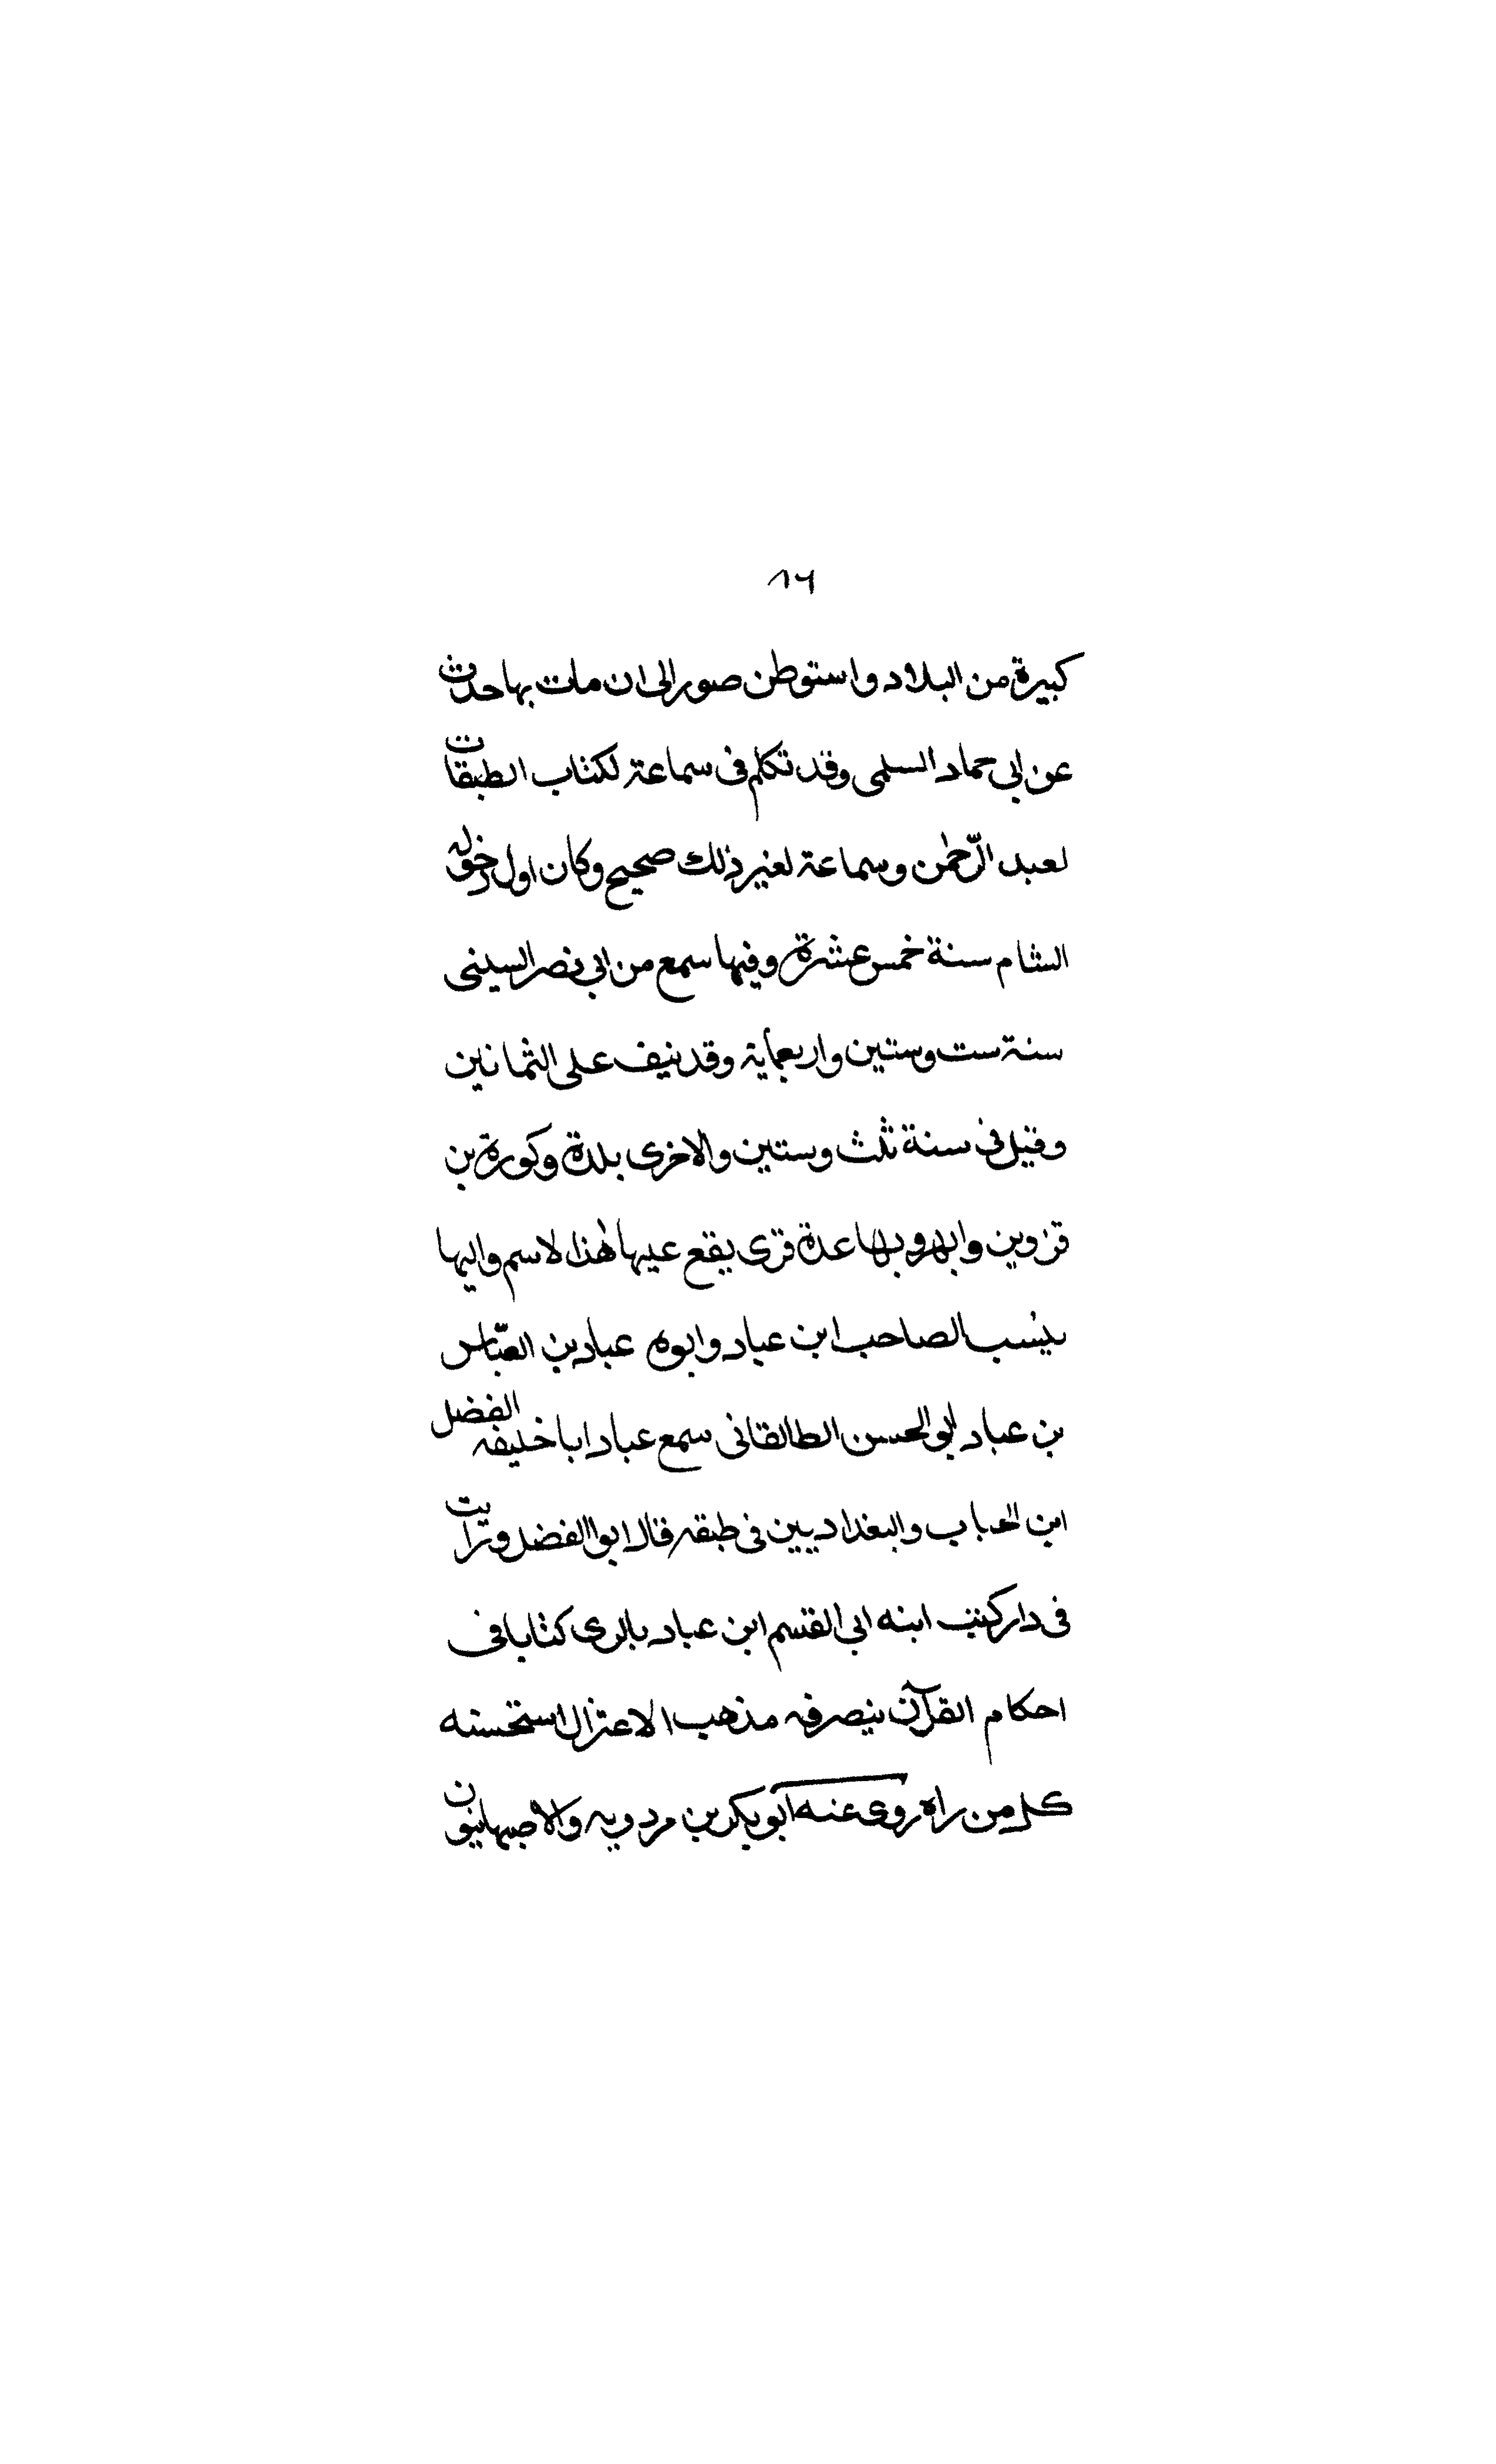 ٨٦
كبيرة من البلاد واستوطن صور الى ان مات بها حدث
عن ابي حماد السلمى وقد تكلم فى سماعة لكتاب الطبقات
لعبد الرّحمٰن وسماعة لغير ذلك صحيح وكان اول دخوله
الشام سنة خمس عشرة وفيها سمع من ابي نصر السيني
سنة ست وستين واربعماية وقد نيف على الثمانين
وقيل فى سنة ثلث وستين والاخرى بلدة وكورة بن
قزوين وابهر وبها عدة قرى يقع عيها هٰذا لاسم واليها
ينسب الصاحب ابن عباد وابوه عباد بن العبّاس
بن عباد ابو الحسن الطالقانى سمع عباد ابا خليفه الفضل
ابن الحباب والبغداديين فى طبقه قال ابو الفضل ورايت
فى دار كتب ابنه ابي القسم ابن عباد بالرى كتابا فى
احكام القرآن ينصر فيه مذهب الاعتزال استحسنه
كل من راه روى عنه ابو بكر بن مردويه والاصبهانيون